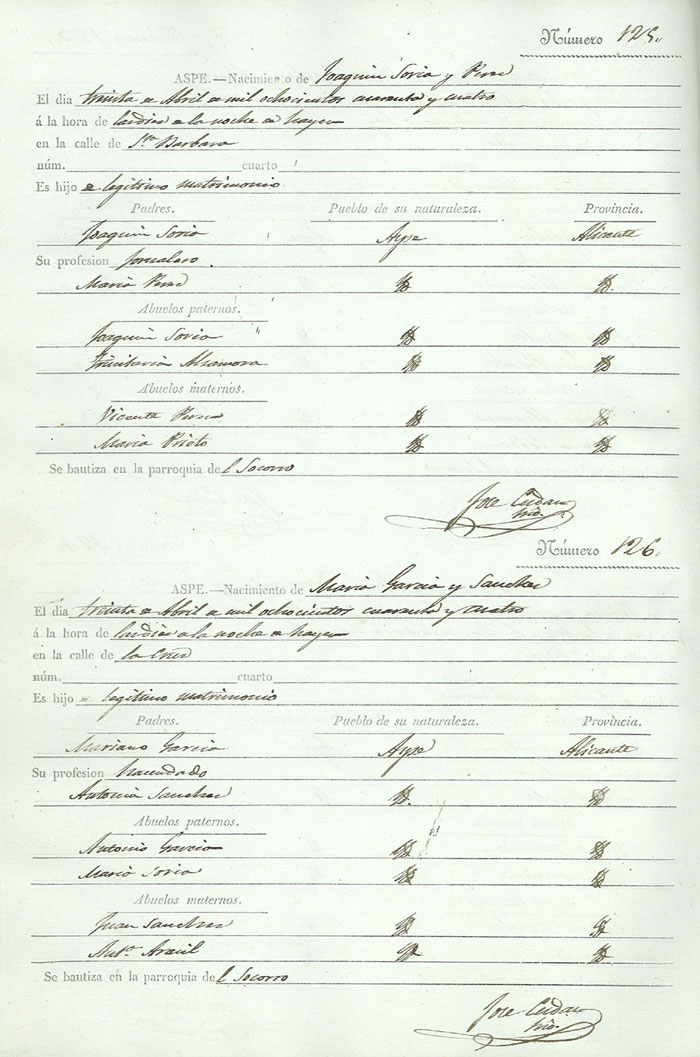 Número 125.
ASPE.—Nacimiento de Joaquin Soria y Perez
El dia treinta de Abril de mil ochocientos cuarenta y cuatro
á la hora de las diez de la noche de hayer
en la calle de Sta Barbara
núm. cuarto
Es hijo de legitimo matrimonio
Padres. Pueblo de su naturaleza. Provincia.
Joaquin Soria Aspe Alicante
Su profesion Jornalero.
Maria Perez
Abuelos paternos.
Joaquin Soria
Trinitaria Alzamora
Abuelos maternos.
Vicente Perez
Maria Prieto
Se bautiza en la parroquia del Socorro
Jose
Número 126.
ASPE.—Nacimiento de Maria Garcia y Sanchez
El dia treinta de Abril de mil ochocientos cuarenta y cuatro
á la hora de las diez de la noche de hayer
en la calle de la Cruz
núm. cuarto
Es hijo de legitimo matrimonio
Padres. Pueblo de su naturaleza. Provincia.
Mariano Garcia Aspe Alicante
Su profesion hacendado
Antonia Sanchez
Abuelos paternos.
Antonio Garcia
Maria Soria
Abuelos maternos.
Juan Sanchez
Anta Aracil
Se bautiza en la parroquia del Socorro
Jose